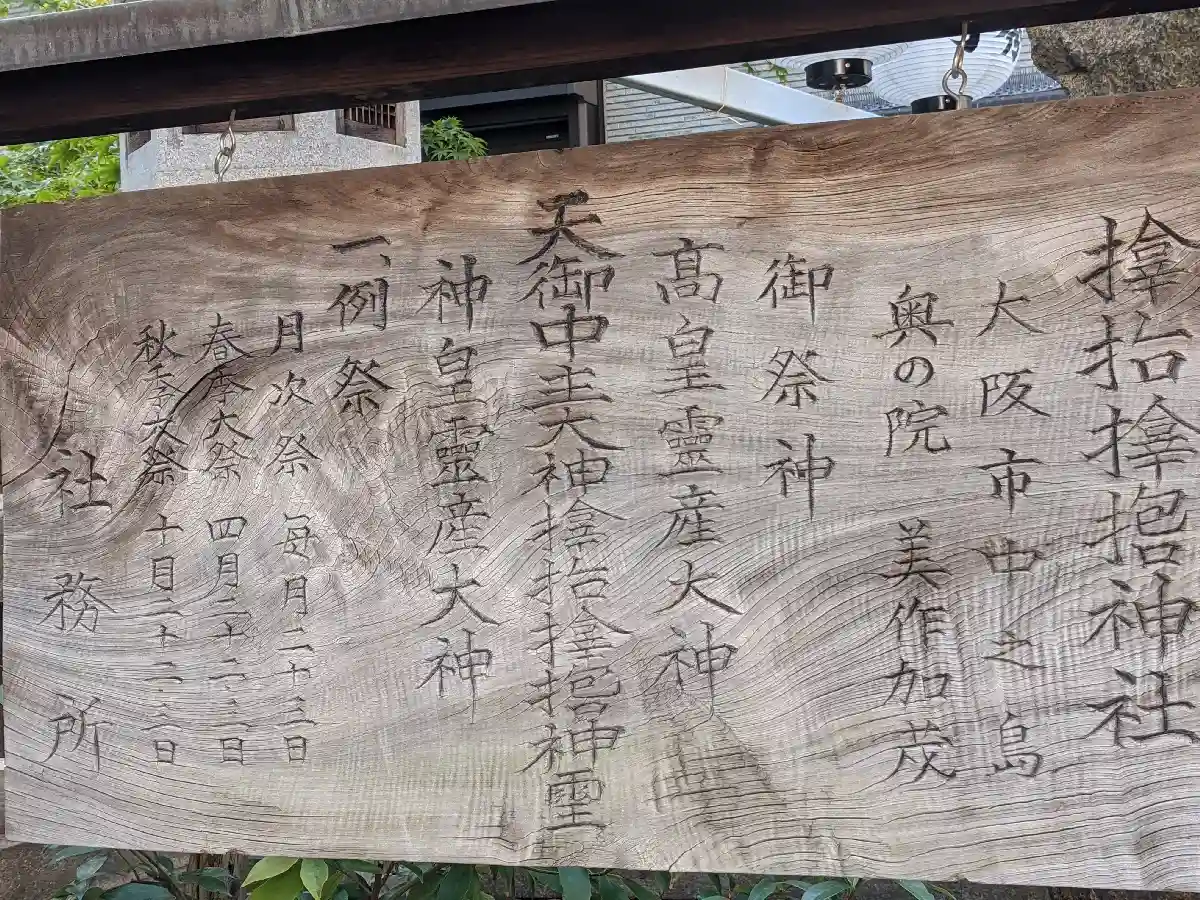 神社
大阪市中之島
奥の院 美作加茂
御祭神
髙皇靈産大神
天御中主大神 神
神皇靈産大神
一、例祭
月次祭 毎月二十三日
春季大祭 四月二十二三日
秋季大祭 十月二十二三日
社務所